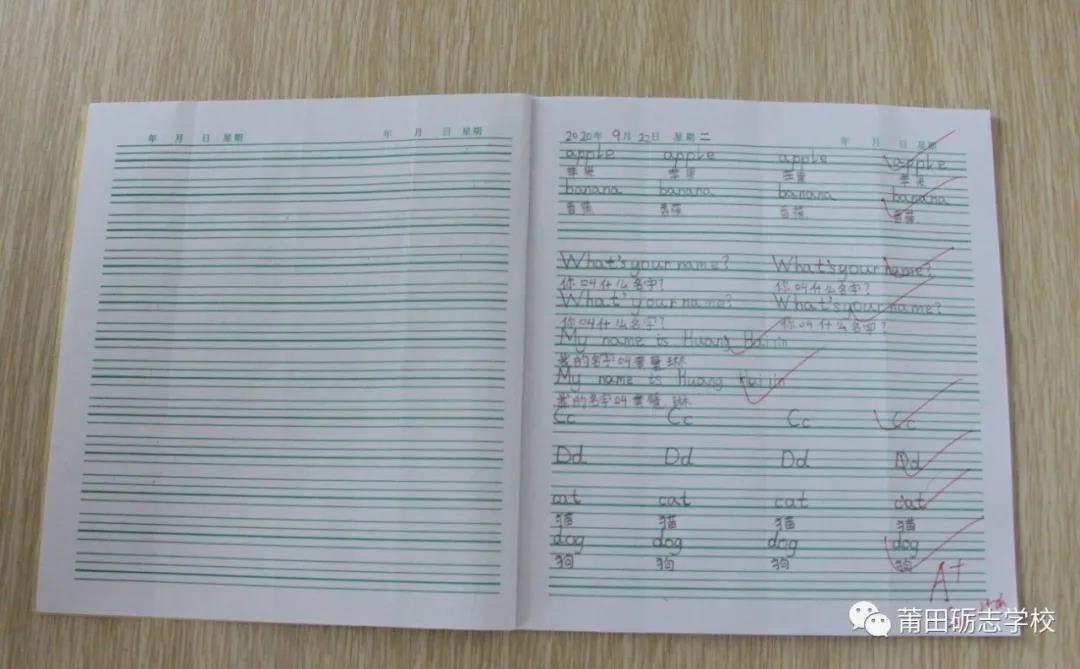 年 月 日 星期 年 月 日 星期
2020年 9月 22日 星期二 年 月 日 星期
apple apple apple apple
苹果 苹果 苹果 苹果
banana banana banana banana
香蕉 香蕉 香蕉 香蕉
What's your name? What's your name?
你叫什么名字? 你叫什么名字?
What' your name? What's your name?
你叫什么名字? 你叫什么名字?
My name is Huang Hai jin
我的名字叫黄 琳
My name is Huang Hai jin
我的名字叫黄 琳
Cc Cc Cc Cc
Dd Dd Dd Dd
cat cat cat cat
猫 猫 猫 猫
dog dog dog dog
狗 狗 狗 狗
A+
莆田砺志学校